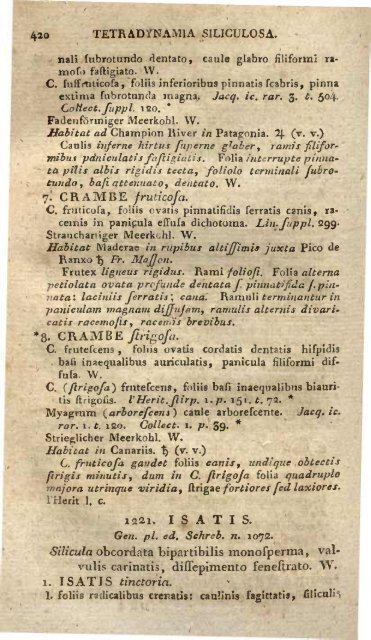 420 TETRADYNAMIA SILICULOSA.
nali ſubrotundo dentato, caule glabro filiformi ra-
moſo faſtigiato. W.
C. ſuffruticoſa, foliis inferioribus pinnatis ſcabris, pinna
extima ſubrotunda magna. Jacq. ic. rar. 3. t. 504.
Collect. ſuppl. 120. *
Fadenförmiger Meerkohl. W.
Habitat ad Champion River in Patagonia. ♃ (v. v.)
Caulis inferne hirtus ſuperne glaber, ramis filifor-
mibus paniculatis faſtigiatis. Folia interrupte pinna-
ta pilis albis rigidis tecta, foliolo terminali ſubro-
tundo, baſi attenuato, dentato. W.
7. CRAMBE fruticoſa.
C. fruticoſa, foliis ovatis pinnatifidis ſerratis canis, ra-
cemis in panicula effuſa dichotoma. Lin. ſuppl. 299.
Strauchartiger Meerkohl. W.
Habitat Maderae in rupibus altiſſimis juxta Pico de
Ranxo ♄ Fr. Maſſon.
Frutex ligneus rigidus. Rami folioſi. Folia alterna
petiolata ovata profunde dentata ſ. pinnatifida ſ. pin-
nata: laciniis ſerratis; cana. Ramuli terminantur in
paniculam magnam diffuſam, ramulis alternis divari-
catis racemoſis, racemis brevibus.
*8. CRAMBE ſtrigoſa.
C. fruteſcens, foliis ovatis cordatis dentatis hiſpidis
baſi inaequalibus auriculatis, panicula filiformi dif-
fuſa. W.
C. (ſtrigoſa) fruteſcens, foliis baſi inaequalibus biauri-
tis ſtrigoſis. l'Herit. ſtirp. 1. p. 151. t. 72. *
Myagrum (arboreſcens) caule arboreſcente. Jacq. ic.
rar. 1. t. 120. Collect. 1. p. 39. *
Strieglicher Meerkohl. W.
Habitat in Canariis. ♄ (v. v.)
C. fruticoſa gaudet foliis canis, undique obtectis
ſtrigis minutis, dum in C. ſtrigoſa folia quadruplo
majora utrinque viridia, ſtrigae fortiores ſed laxiores.
l'Herit l. c.
1221. ISATIS.
Gen. pl. ed. Schreb. n. 1072.
Silicula obcordata bipartibilis monoſperma, val-
vulis carinatis, diſſepimento feneſtrato. W.
1. ISATIS tinctoria.
I. foliis radicalibus crenatis: caulinis ſagittatis, ſiliculis